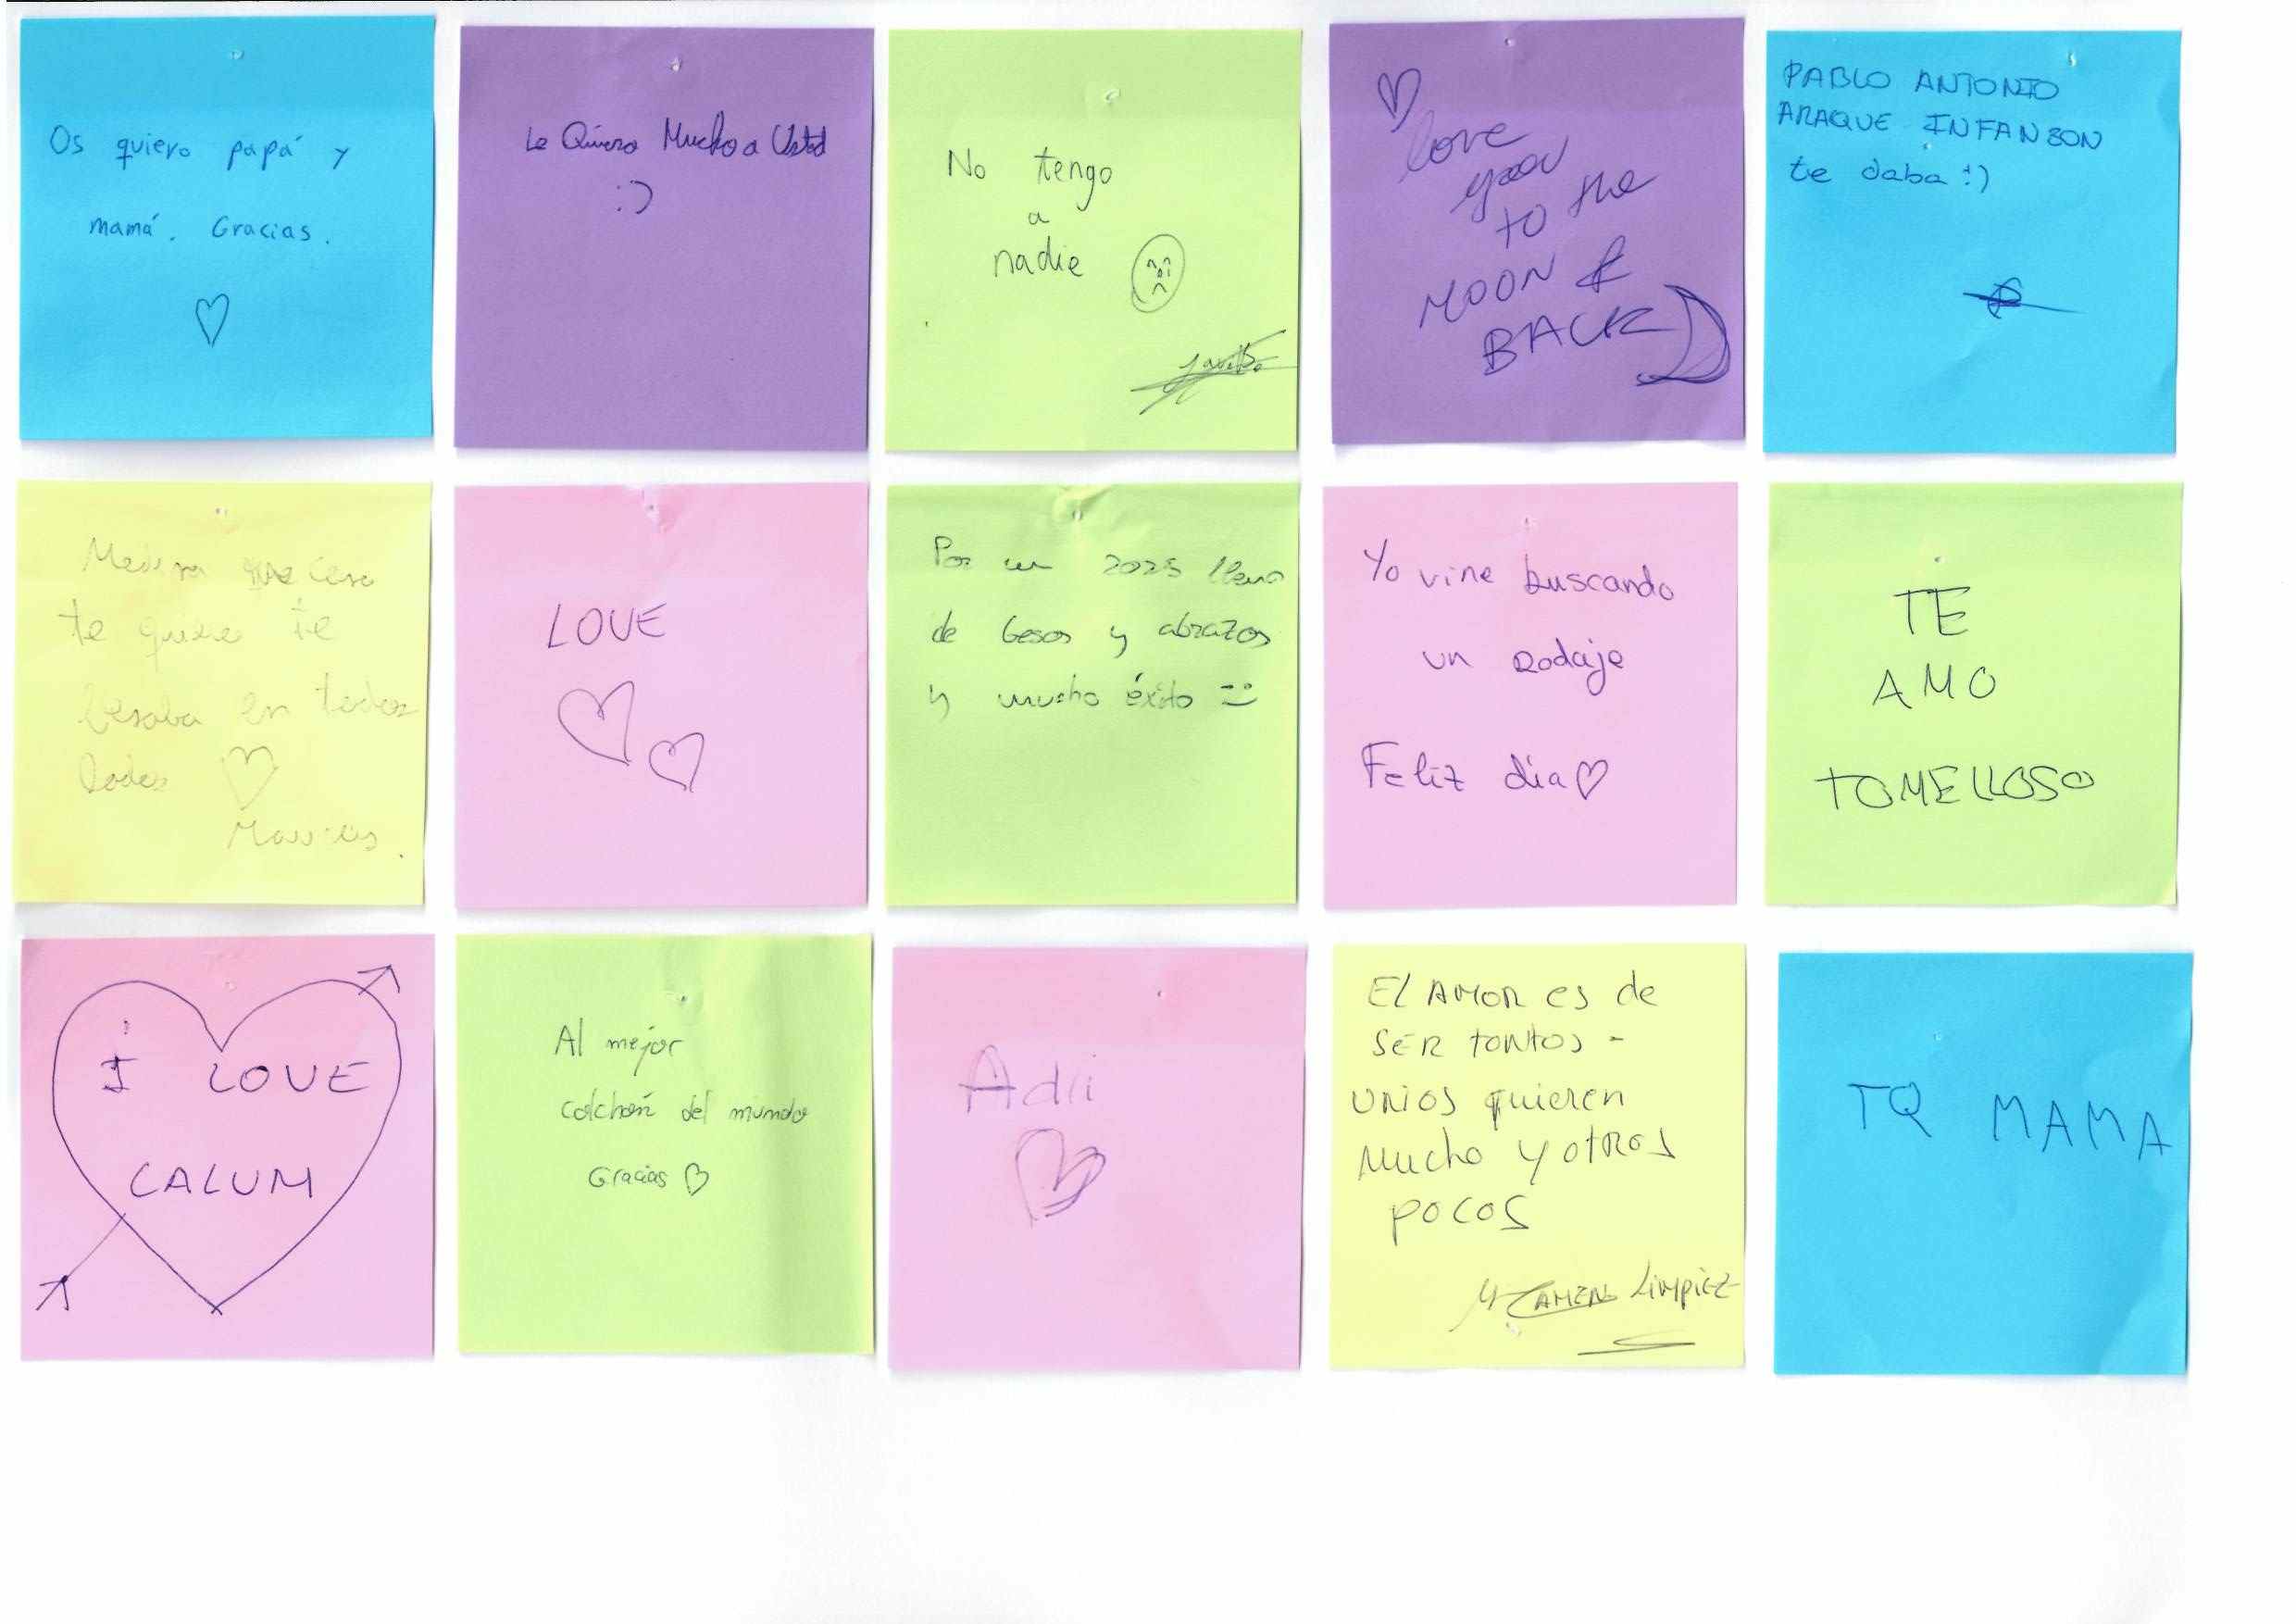 Os quiero papá y
mamá. Gracias.
Le Quiero Mucho a Usted
:)
No tengo
a
nadie
love
you
to the
MOON &
BACK
PABLO ANTONIO
ARAQUE INFANZON
te daba :)
te quise te
besaba en todos
lados
LOVE
Por un 2025 lleno
de besos y abrazos
y mucho éxito
Yo vine buscando
un Rodaje
Feliz dia
TE
AMO
TOMELLOSO
I LOVE
CALUM
Al mejor
colchón del mundo
Gracias
Adri
El AMOR es de
SER tontos -
UNOS quieren
Mucho y otros
pocos
Limpiez
TQ MAMA